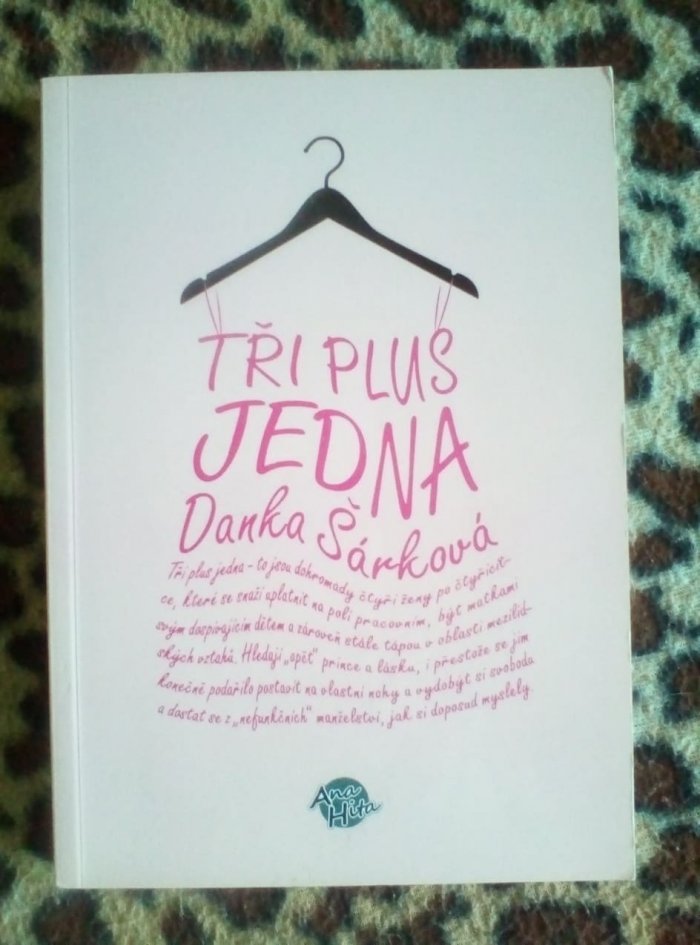 TŘI PLUS
JEDNA
Danka Šárková
Tři plus jedna - to jsou dohromady čtyři ženy po čtyřicít-
ce, které se snaží uplatnit na poli pracovním, být matkami
svým dospívajícím dětem a zároveň stále tápou v oblasti mezilid-
ských vztahů. Hledají „opět" prince a lásku, i přestože se jim
konečně podařilo postavit na vlastní nohy a vydobýt si svobodu
a dostat se z „nefunkčních" manželství, jak si doposud myslely.
Ana
Hita